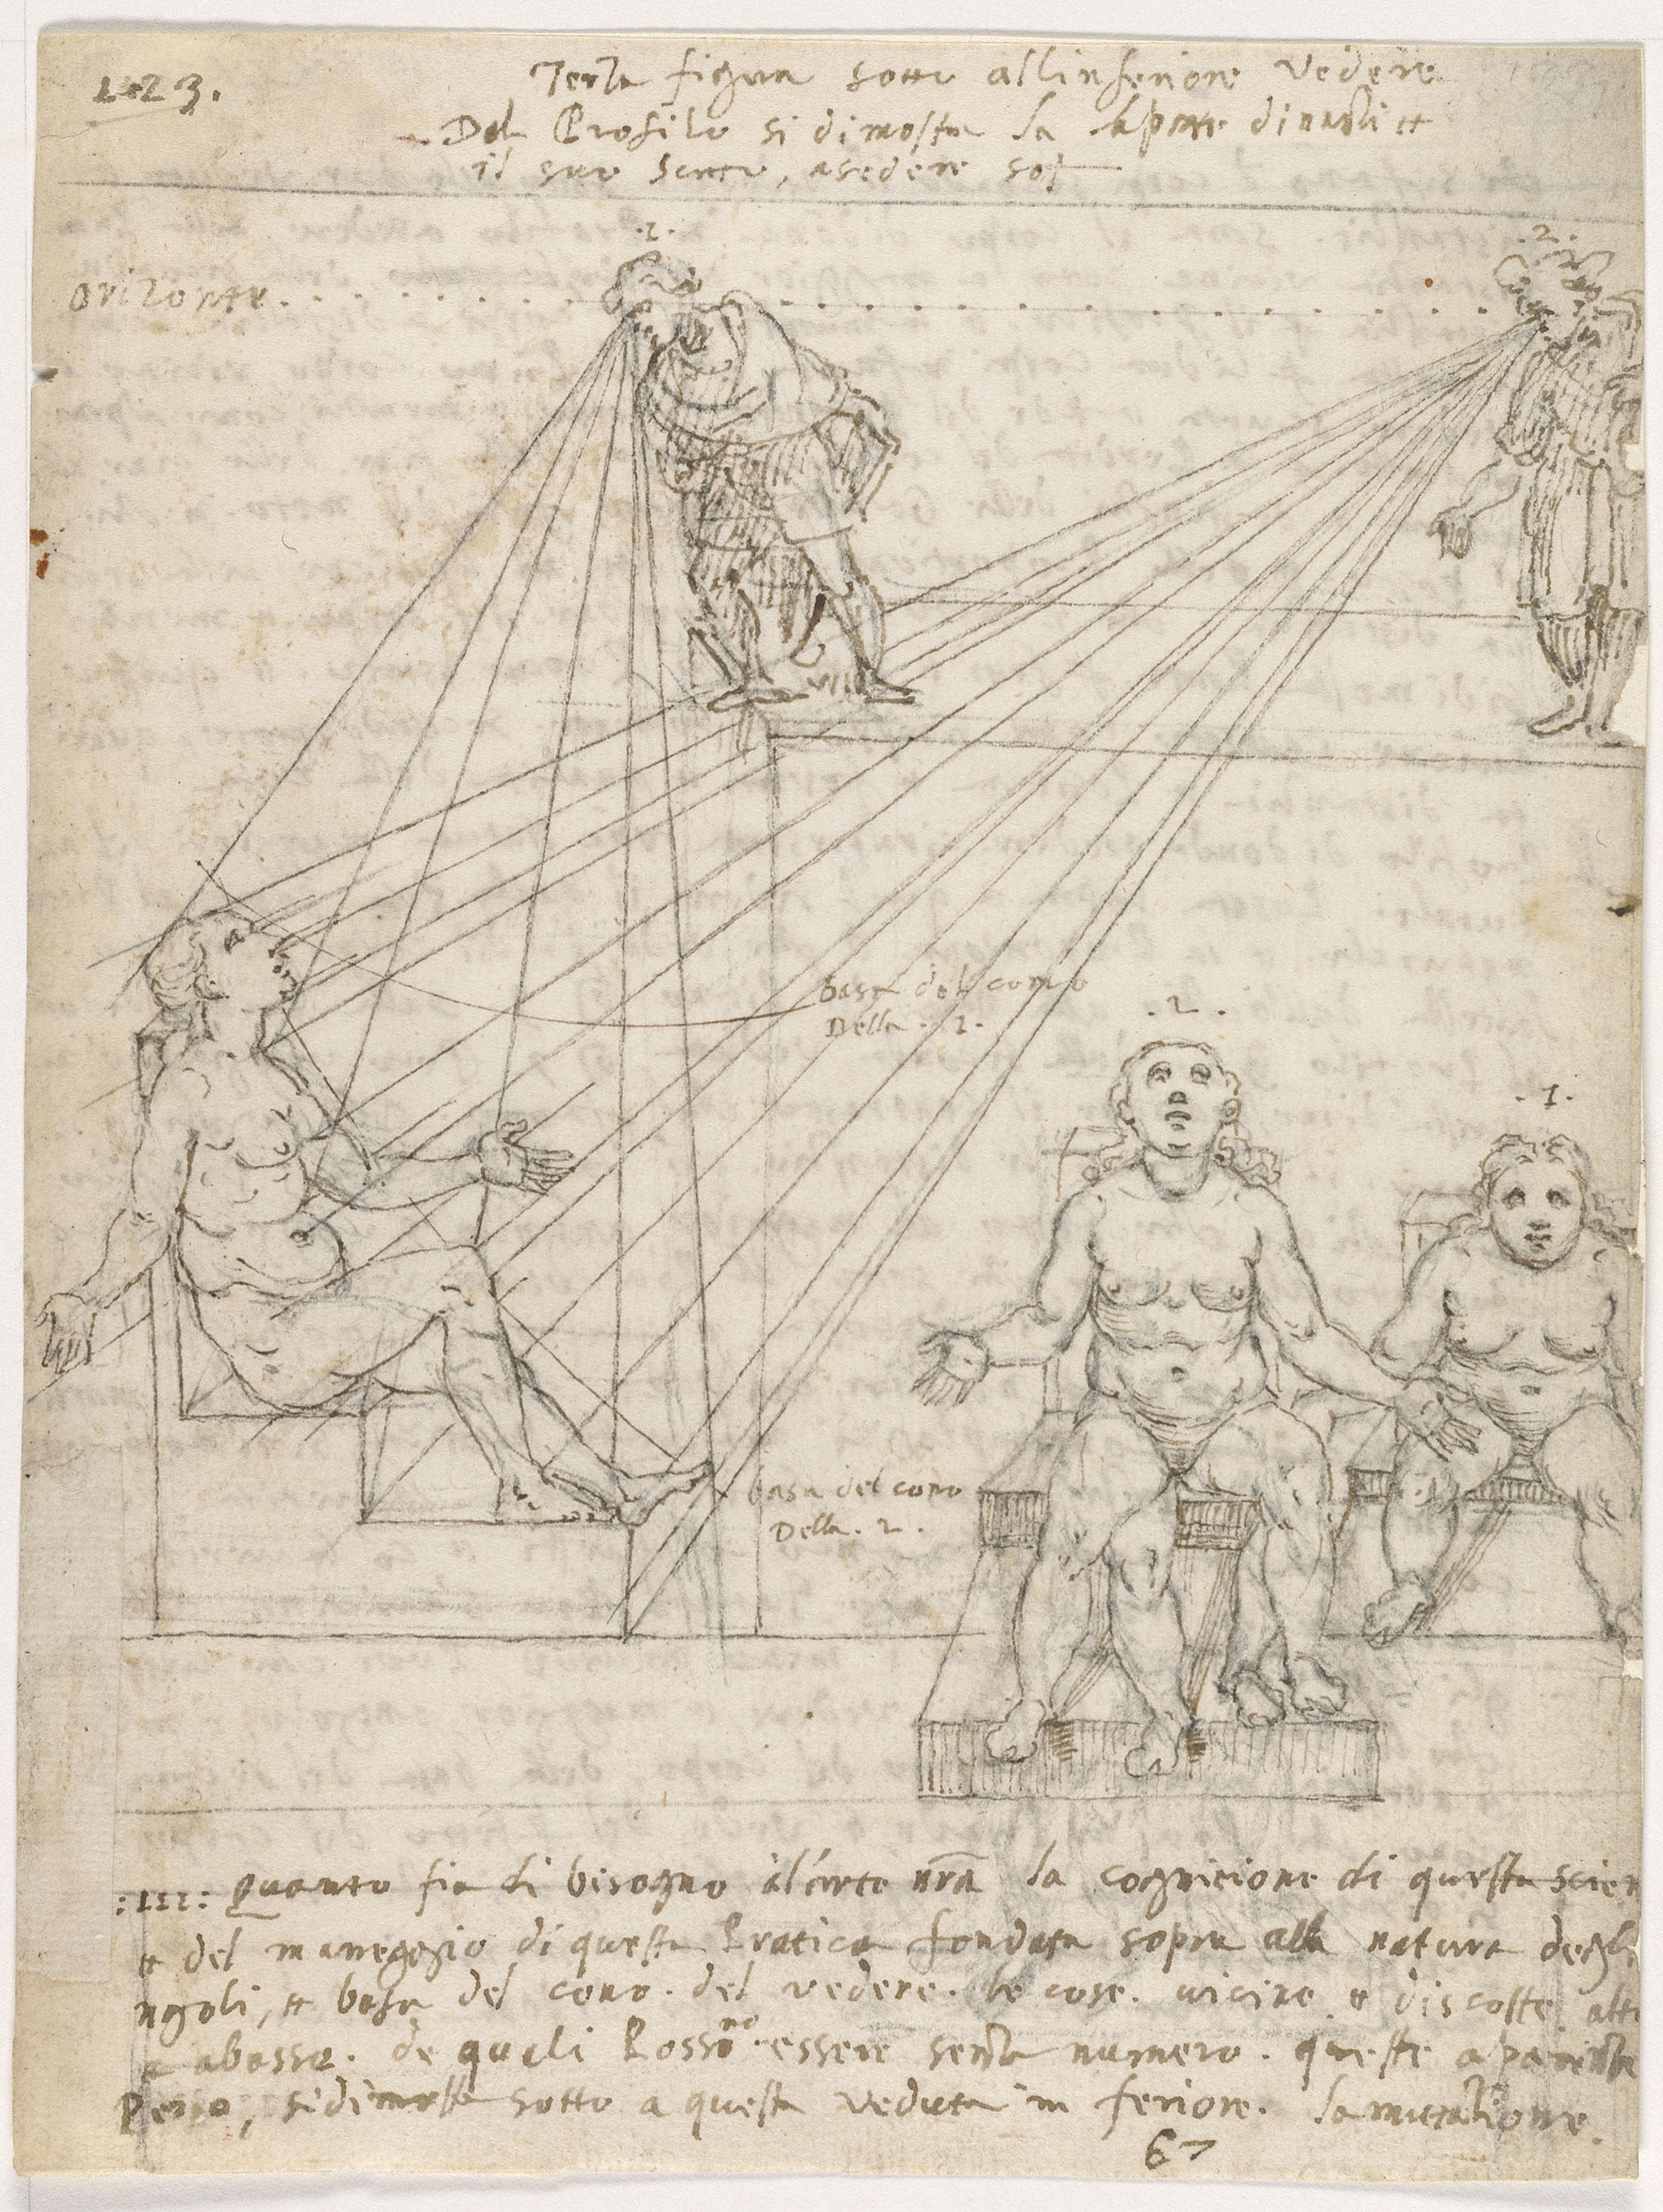 123.
Terza figura sotto all inferiore vedere
Del Profilo si dimostra la dinanti et
il suo sentro, asedere sot
.1. .2.
orizonte
basa del cono
Della .1.
.2.
.1.
basa del cono
Della .2.
:III: Quanto fia di bisogno al'arte nr̃a la cognicione di questa scien
et del maneggio di questa Pratica fondata sopra alla natura degli
ngoli, et basa del cono. del vedere. le cose. vicine et discoste alte
abasso. de quali Possono essere senza numero. queste
sidimostra sotto a questa veduta in feriore. la mutatione.
67